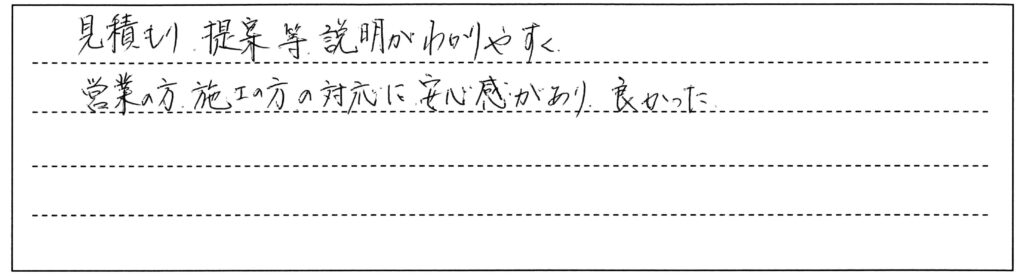 見積もり、提案等、説明がわかりやすく、
営業の方、施工の方の対応に安心感があり、良かった